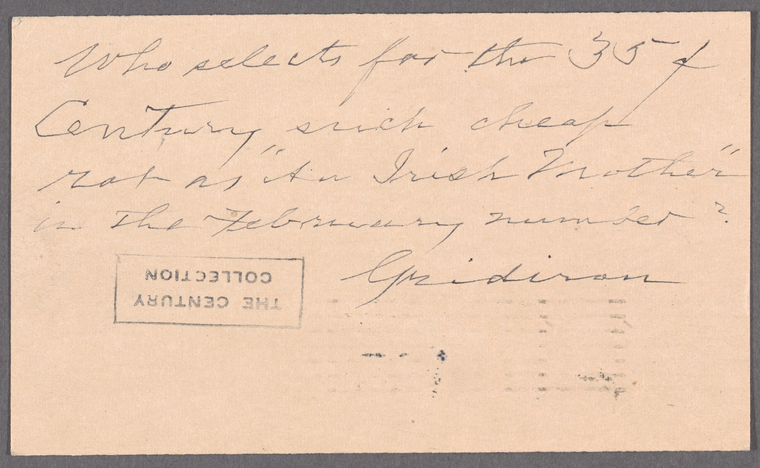 Who selects for the 35¢
Century, such cheap
rot as "An Irish Mother"
in the February number?
Gridiron
THE CENTURY
COLLECTION